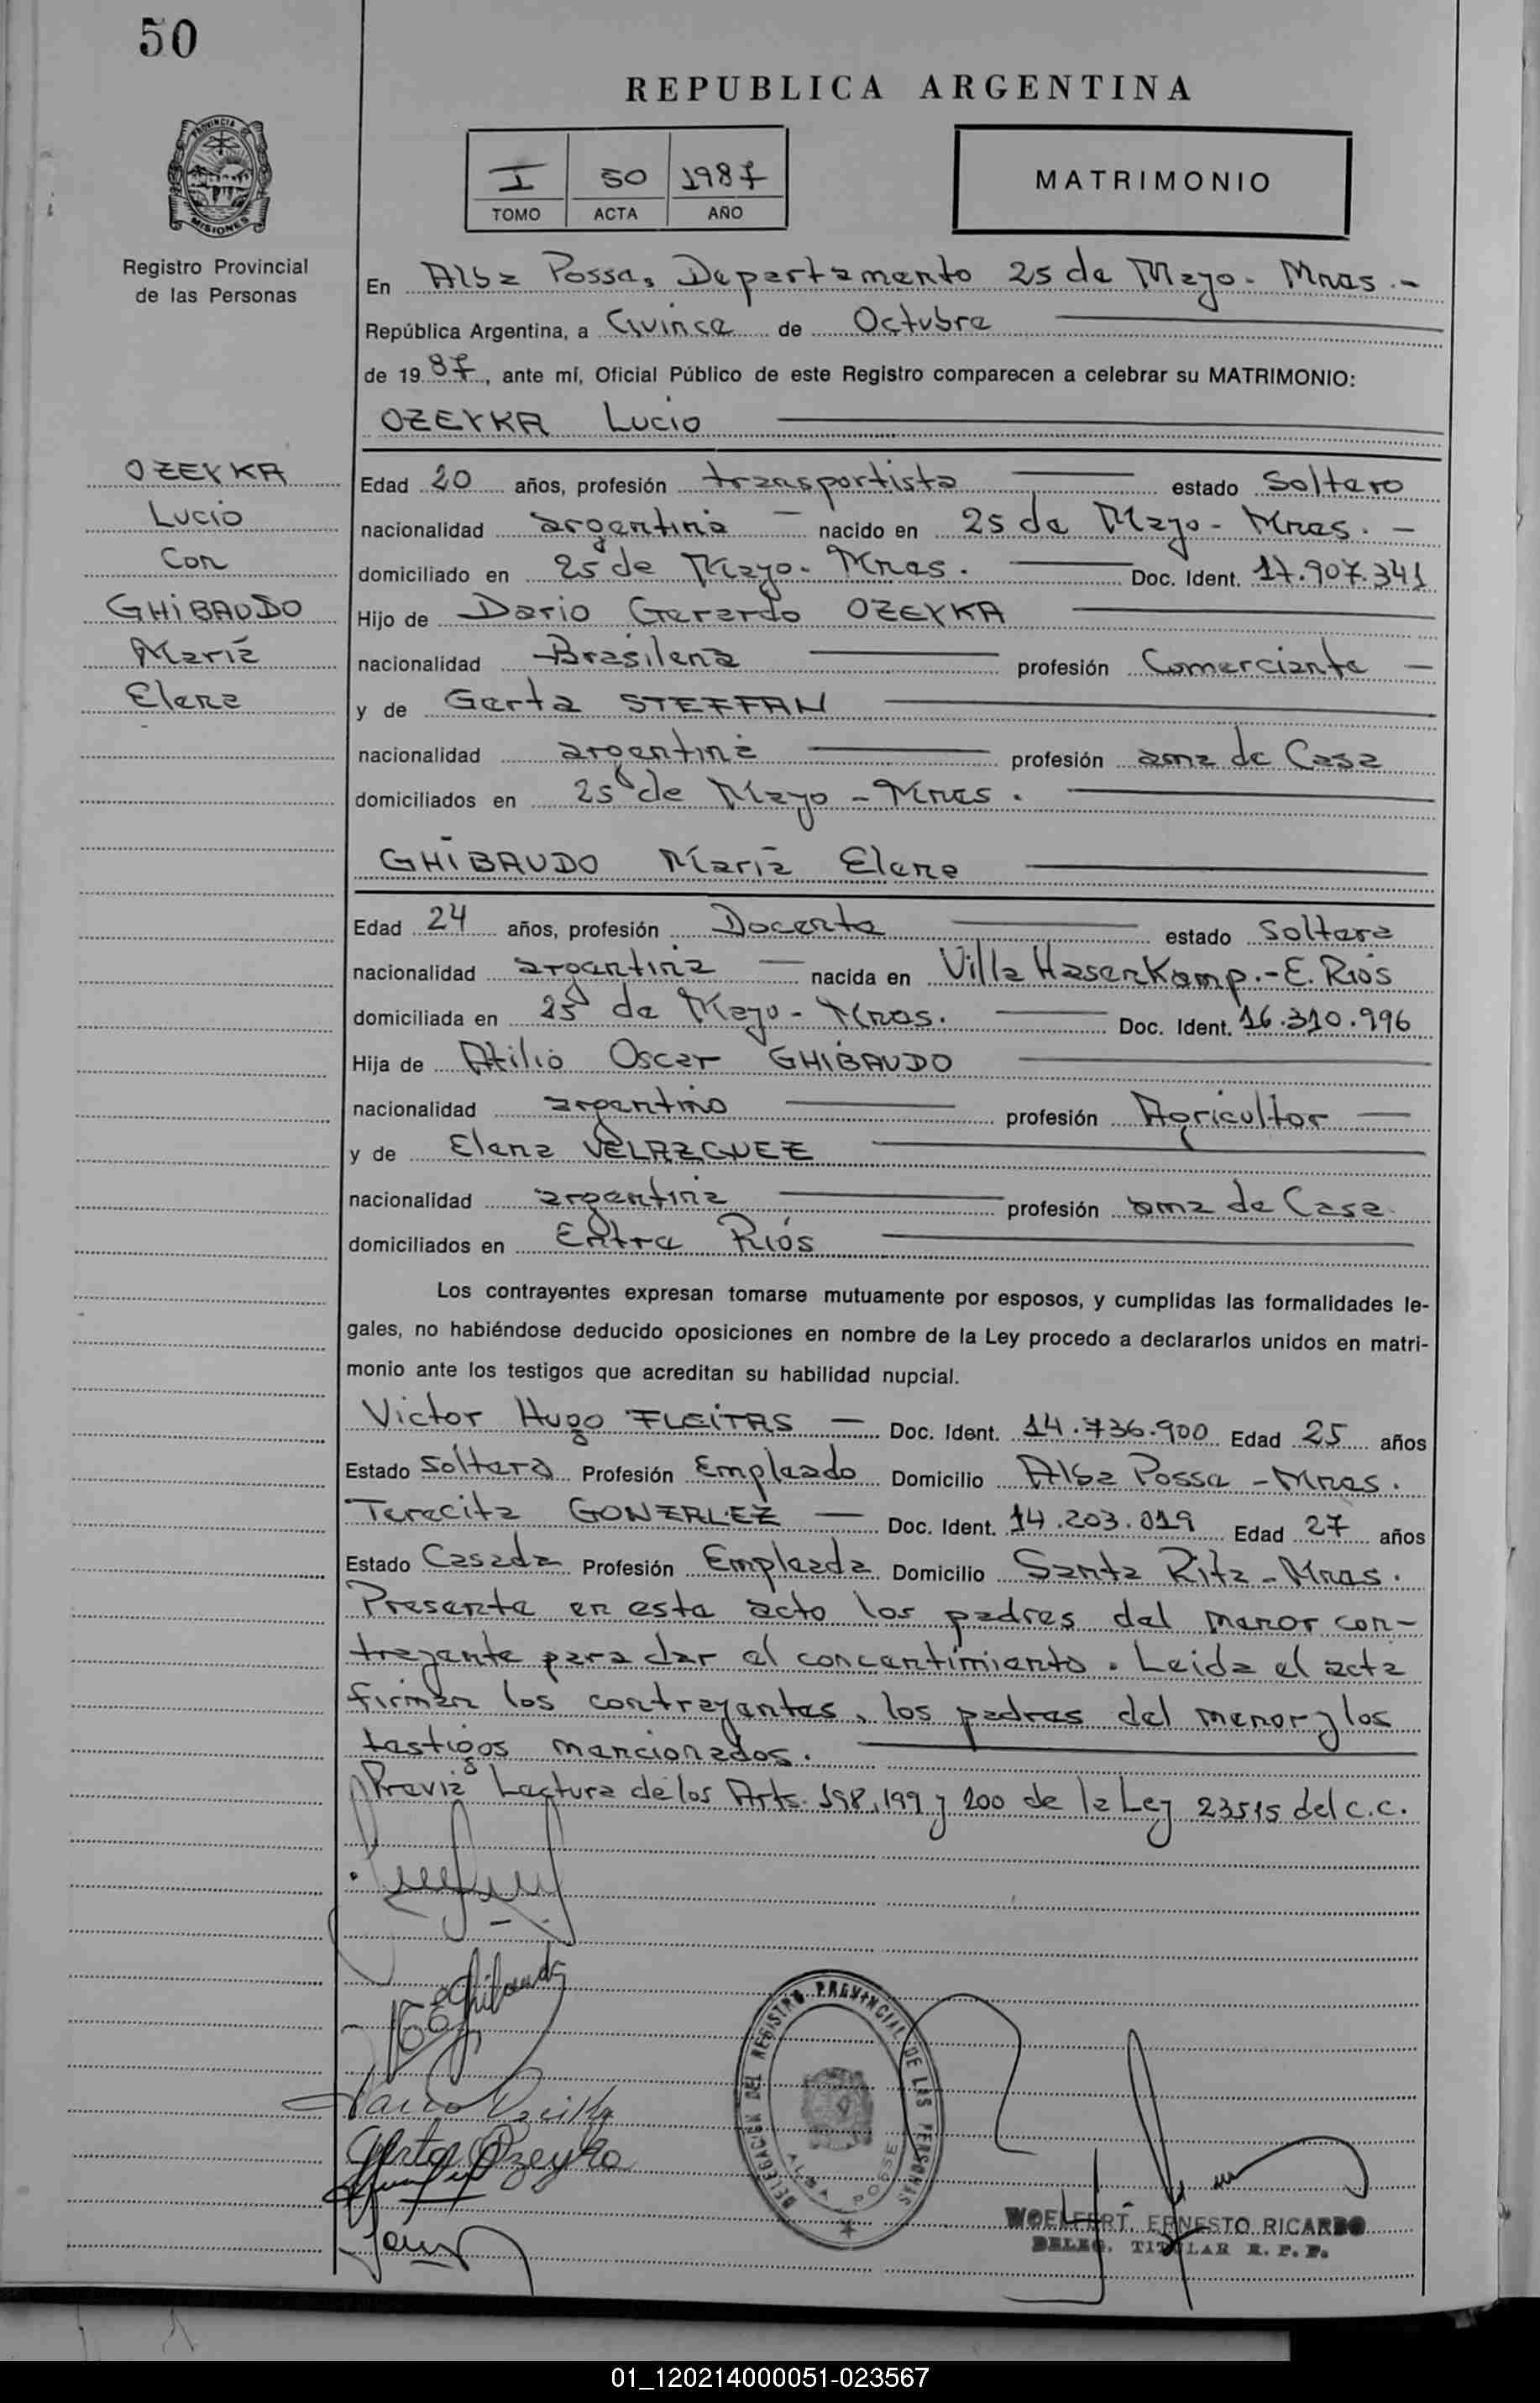 50
REPUBLICA ARGENTINA
I 50 1987
TOMO ACTA AÑO
MATRIMONIO
PROVINCIA DE
MISIONES
Registro Provincial
de las Personas
En Alba Possa, Departamento 25 de Mayo - Mnes.-
República Argentina, a Quince de Octubre
de 1987, ante mí, Oficial Público de este Registro comparecen a celebrar su MATRIMONIO:
OZEYKA Lucio
OZEYKA
Lucio
Con
GHIBAUDO
María
Elena
Edad 20 años, profesión transportista estado Soltero
nacionalidad argentina nacido en 25 de Mayo - Mnes. -
domiciliado en 25 de Mayo - Mnes. Doc. Ident. 17.907.341
Hijo de Dario Gerardo OZEYKA
nacionalidad Brasilena profesión Comerciante
y de Gerta STEFFAN
nacionalidad argentina profesión ama de Casa
domiciliados en 25 de Mayo - Mnes.
GHIBAUDO María Elena
Edad 24 años, profesión Docente estado Soltera
nacionalidad argentina nacida en Villa Hasenkamp.-E. Ríos
domiciliada en 25 de Mayo - Mnes. Doc. Ident. 16.310.996
Hija de Atilio Oscar GHIBAUDO
nacionalidad argentino profesión Agricultor
y de Elena VELAZQUEZ
nacionalidad argentina profesión ama de Casa
domiciliados en Entre Ríos
Los contrayentes expresan tomarse mutuamente por esposos, y cumplidas las formalidades le-
gales, no habiéndose deducido oposiciones en nombre de la Ley procedo a declararlos unidos en matri-
monio ante los testigos que acreditan su habilidad nupcial.
Victor Hugo FLEITAS Doc. Ident. 14.736.900 Edad 25 años
Estado Soltero Profesión Empleado Domicilio Alba Possa - Mnes.
Terecita GONZALEZ Doc. Ident. 14.203.019 Edad 27 años
Estado Casada Profesión Empleada Domicilio Santa Rita - Mnes.
Presente en este acto los padres del menor con-
trayente para dar el concentimiento. Leida el acta
firman los contrayentes, los padres del menor y los
testigos mencionados.
Previa Lectura de los Arts. 198, 199 y 200 de la Ley 23515 del C.C.
Ghibaudo
Gerta Ozeyka
DELEGACION DEL REGISTRO PROVINCIAL DE LAS PERSONAS
ALBA POSSE
WOELFERT ERNESTO RICARDO
DELEG. TITULAR R. P. P.
01_120214000051-023567